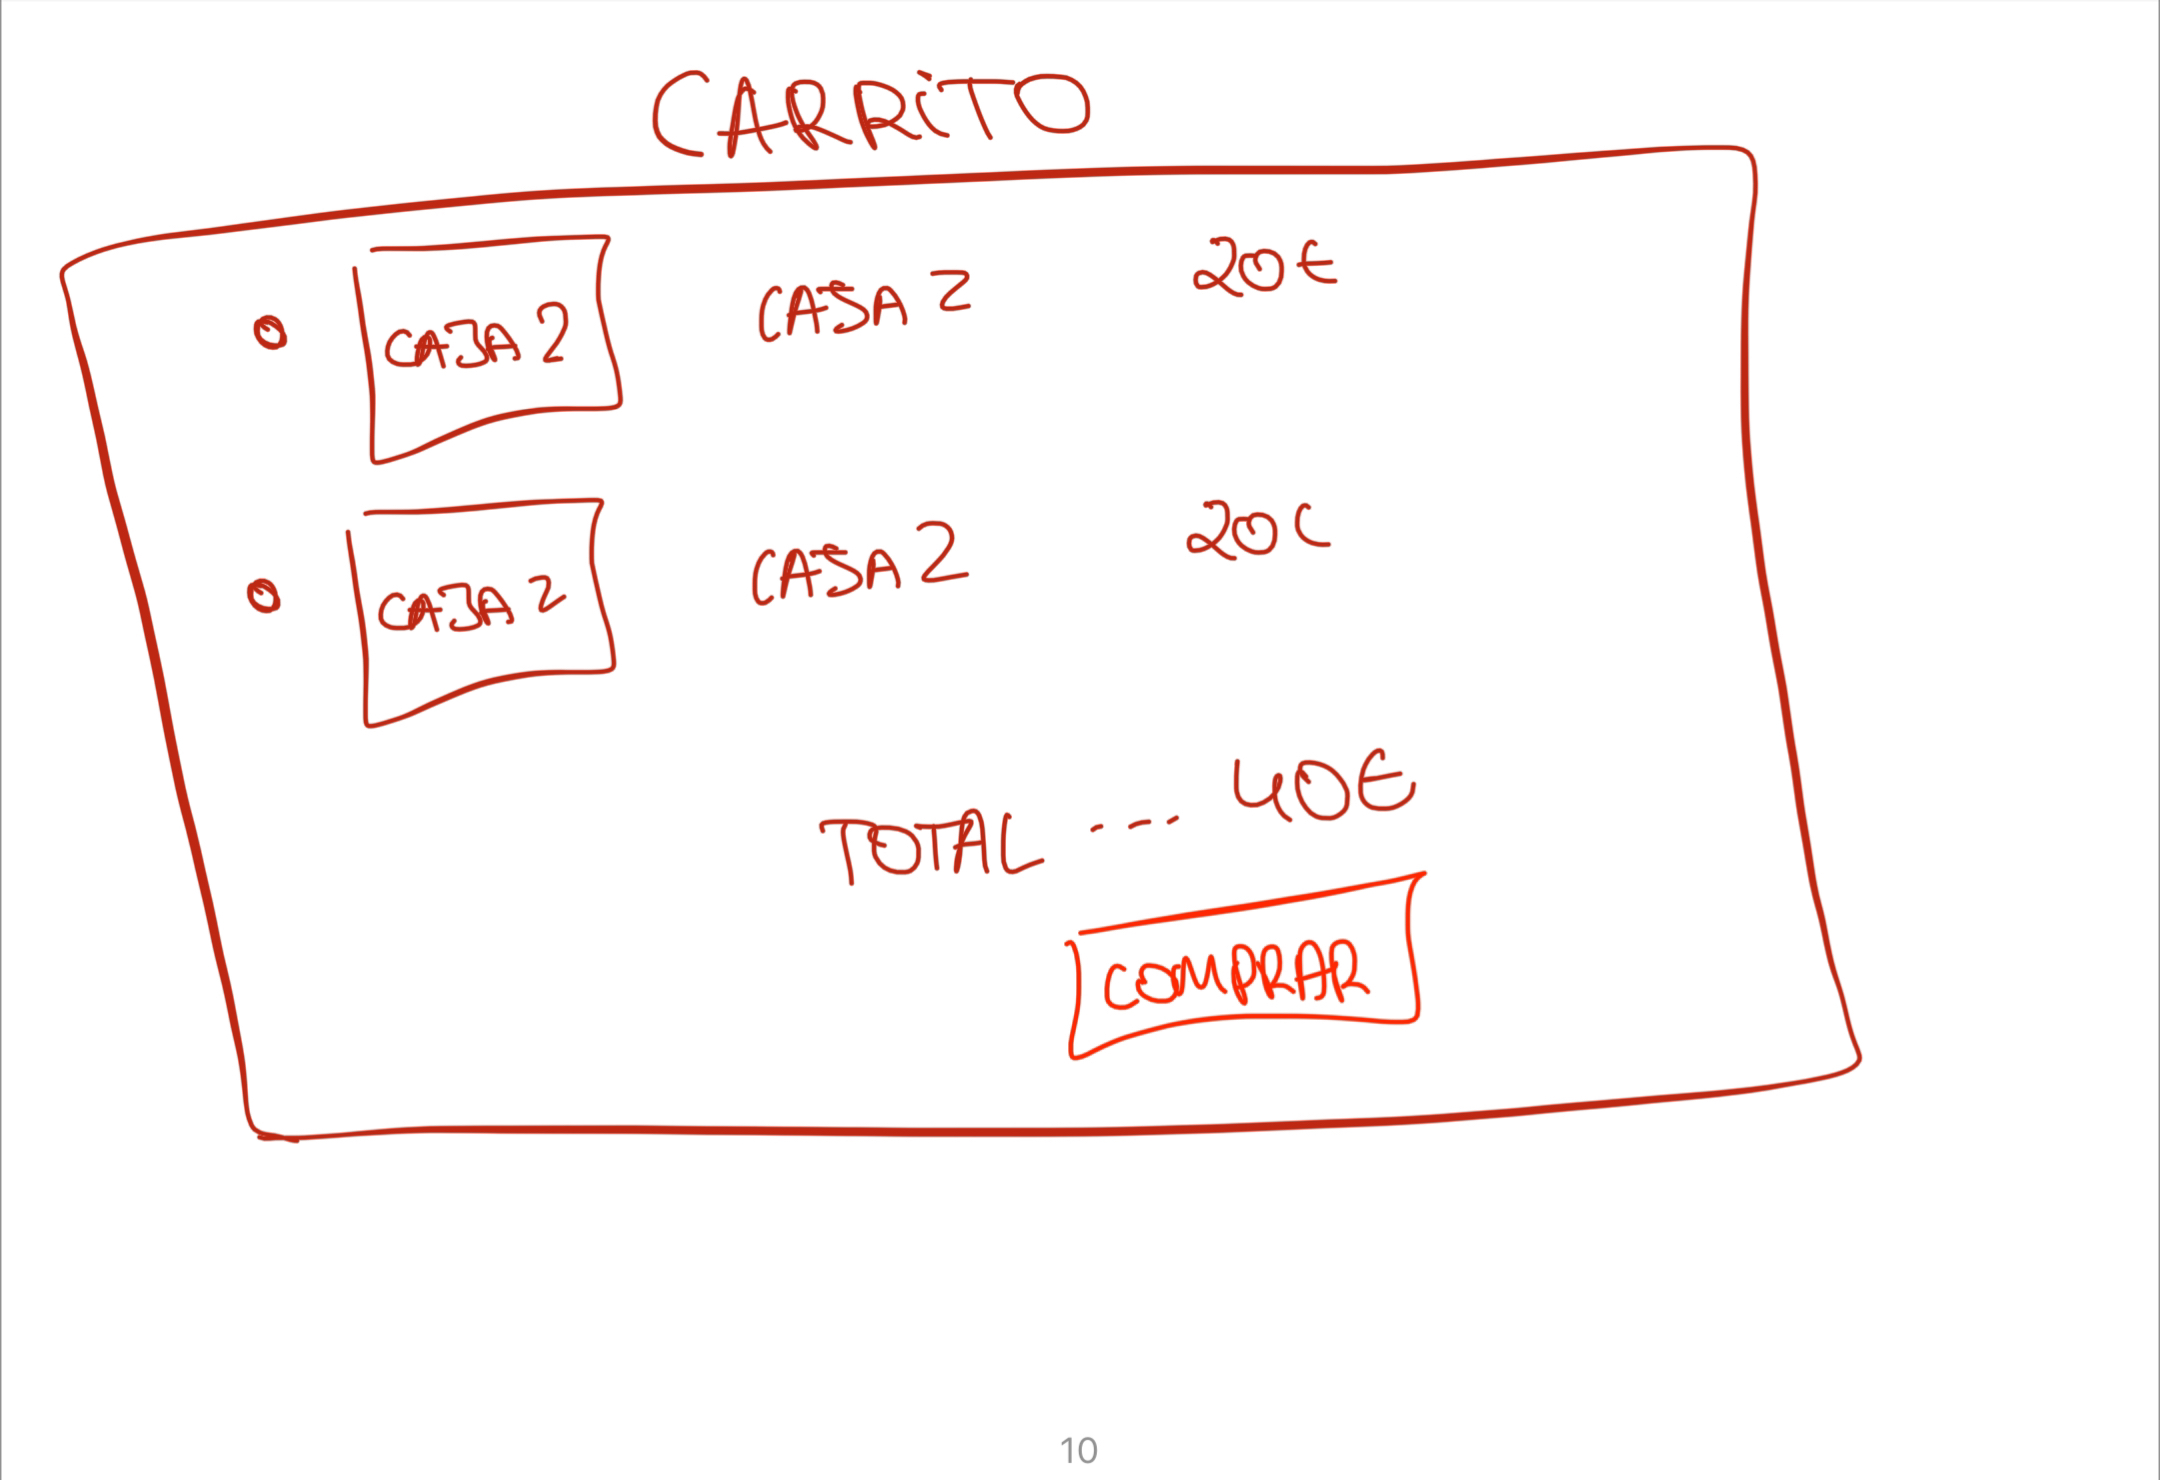 CARRITO
CAJA 2 CASA 2 20€
CAJA 2 CASA 2 20C
TOTAL --- 40€
COMPRAR
10